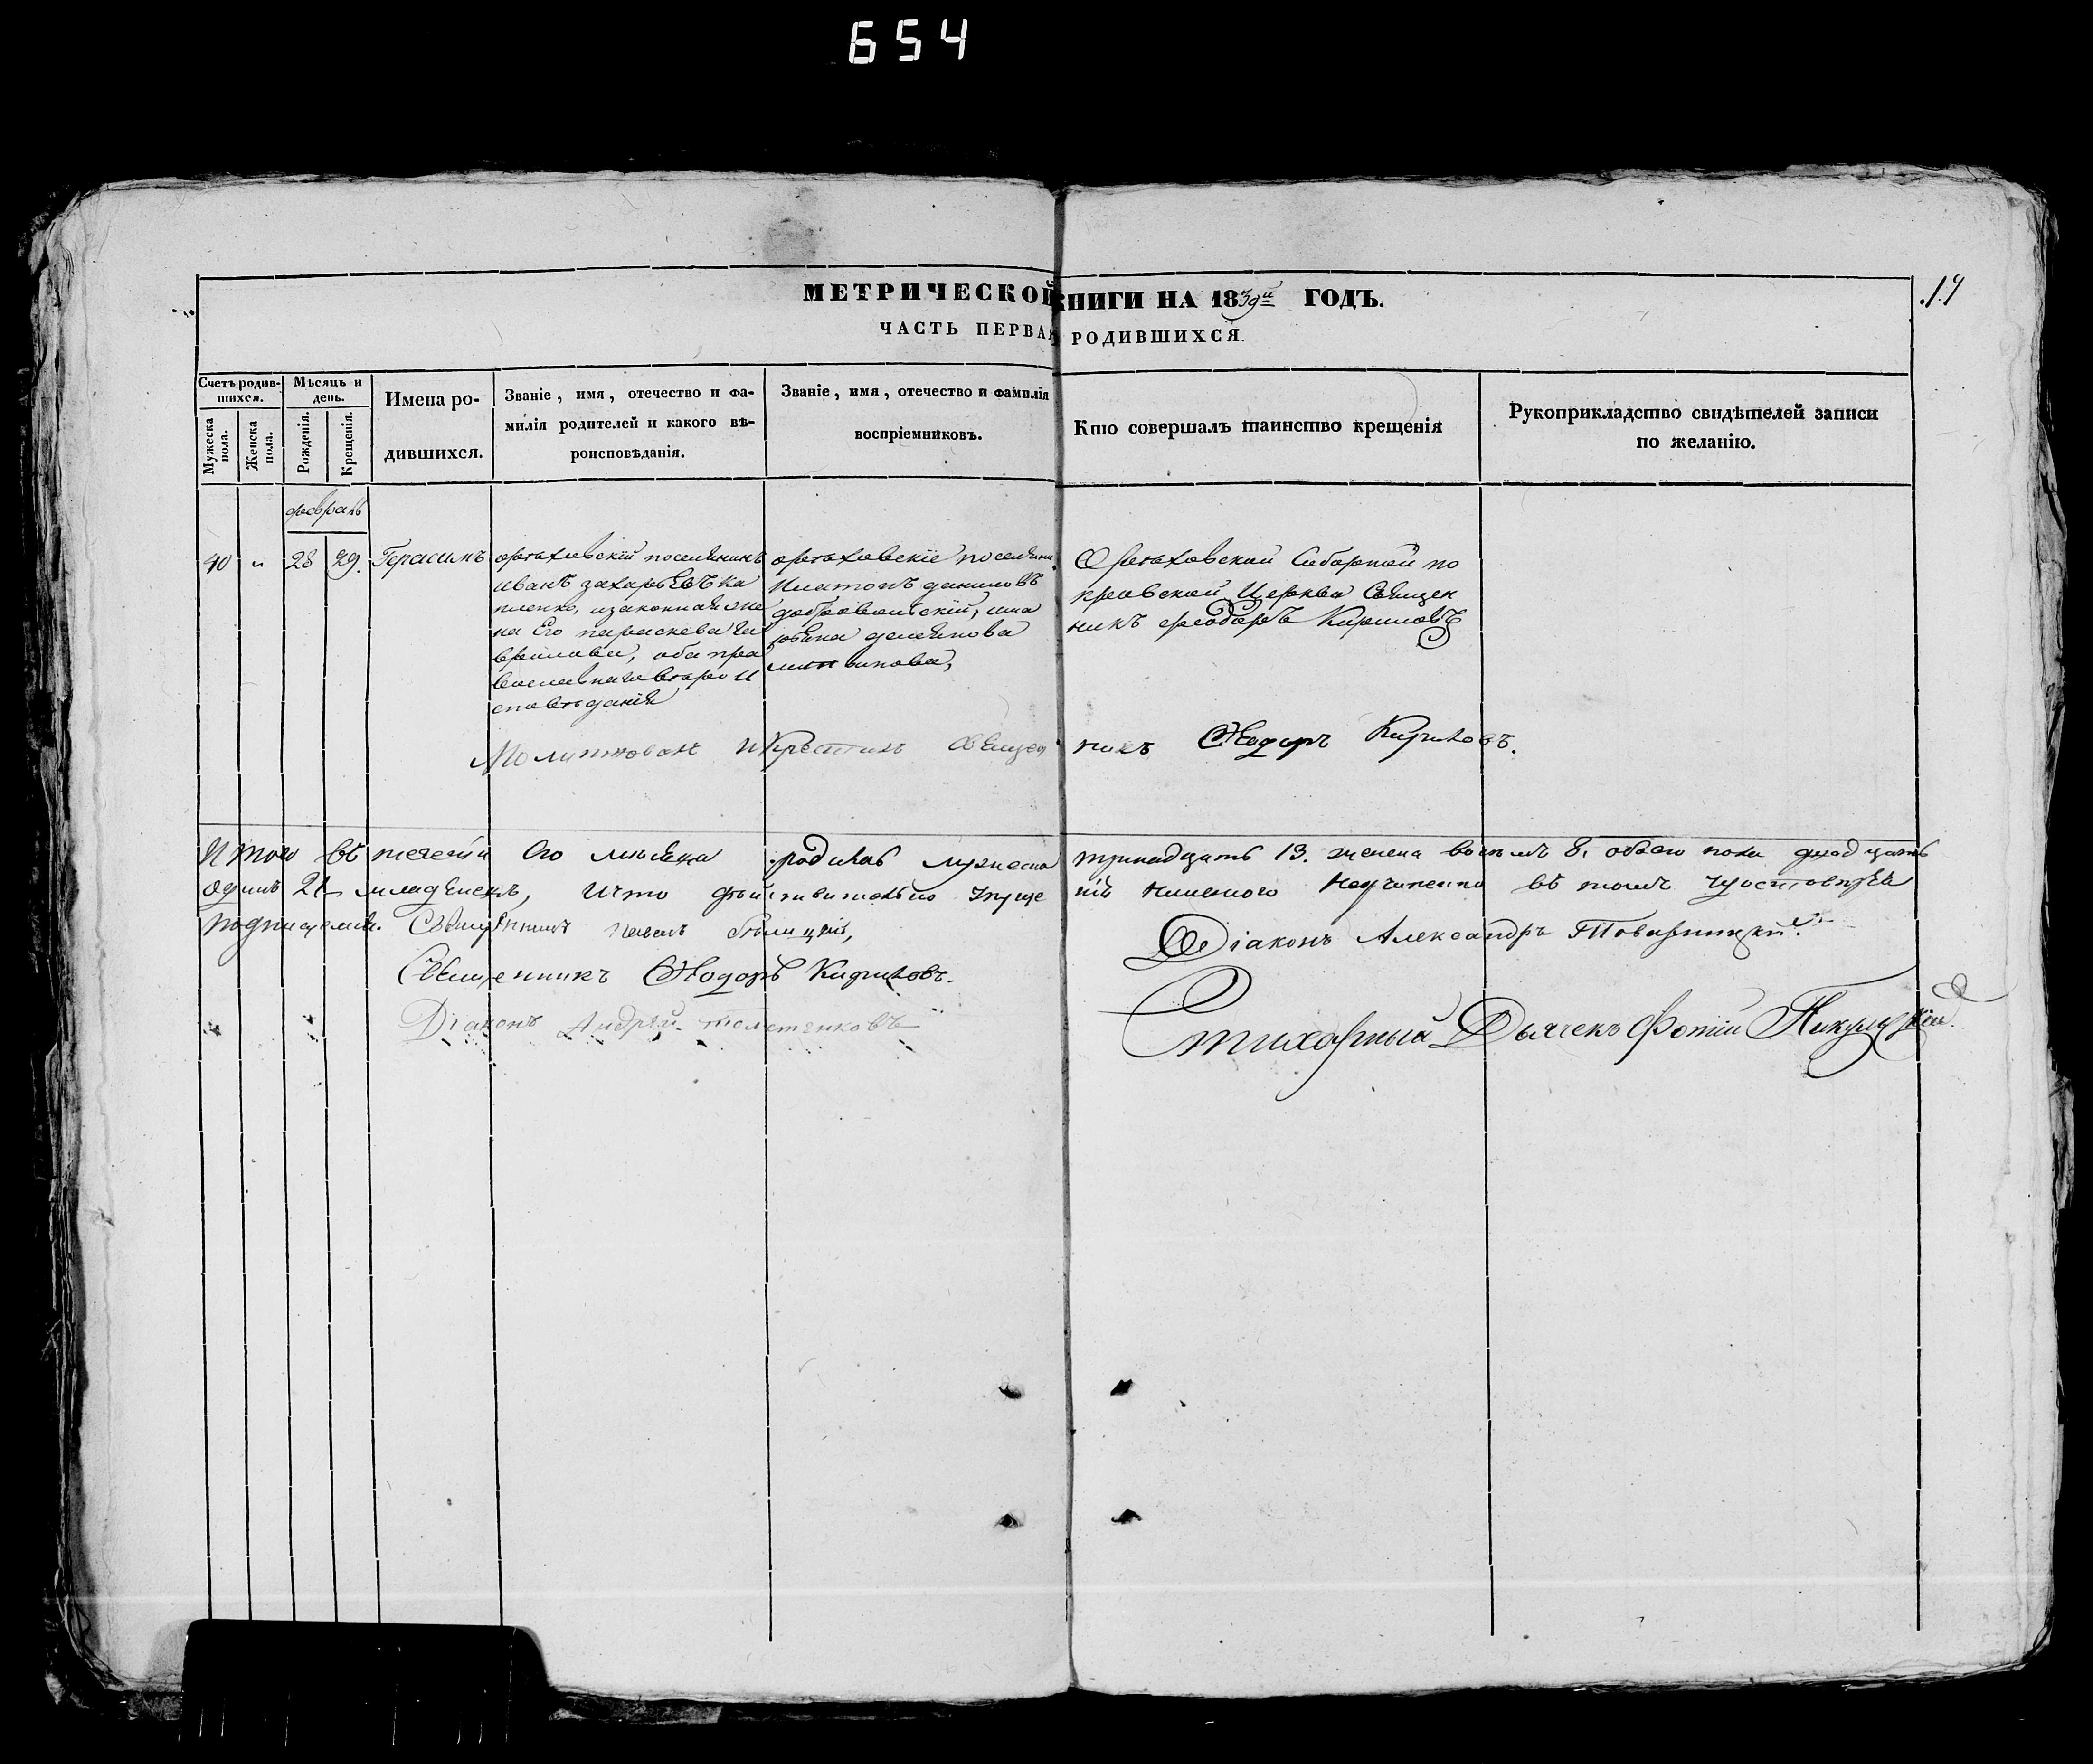 654
МЕТРИЧЕСКОЙ КНИГИ НА 1839й ГОДЪ.
19
ЧАСТЬ ПЕРВАЯ РОДИВШИХСЯ.
Счетъ родив-
шихся.
Мѣсяцъ и
день.
Мужеска
пола.
Женска
пола.
Рожденія.
Крещенія.
Имена ро-
дившихся.
Званіе, имя, отечество и фа-
милія родителей и какого вѣ-
роисповѣданія.
Званіе, имя, отечество и фамилія
воспріемниковъ.
Кто совершалъ таинство крещенія
Рукоприкладство свидѣтелей записи
по желанію.
февраль
10
28
29.
Герасимъ
орѣховскій поселянинъ
иванъ захарьевъ ка
пленко, изаконная же
на Его параскева
оба пра
вославнаго вѣро И
сповѣданія
орѣховскіе поселяни
Платонъ даниловъ
добровольскій,
Орѣховской Соборной по
кровской Церкви Священ
никъ феодоръ Кириловъ
Молитвовалъ и Крестилъ Священ
никъ Ѳеодоръ Кириловъ.
Итого въ теченіи Сего мѣсяца родилось мужеска тринадцать 13. женска восемь 8, обоего пола двадцать
одинъ 21 младенецъ, Что дѣйствительно упуще нія никакого неучинено въ томъ
подписуемся. Священникъ
Діаконъ Александръ
Священникъ Ѳеодоръ Кириловъ.
Діаконъ Андрей
Стихарный Дьячекъ Фотій